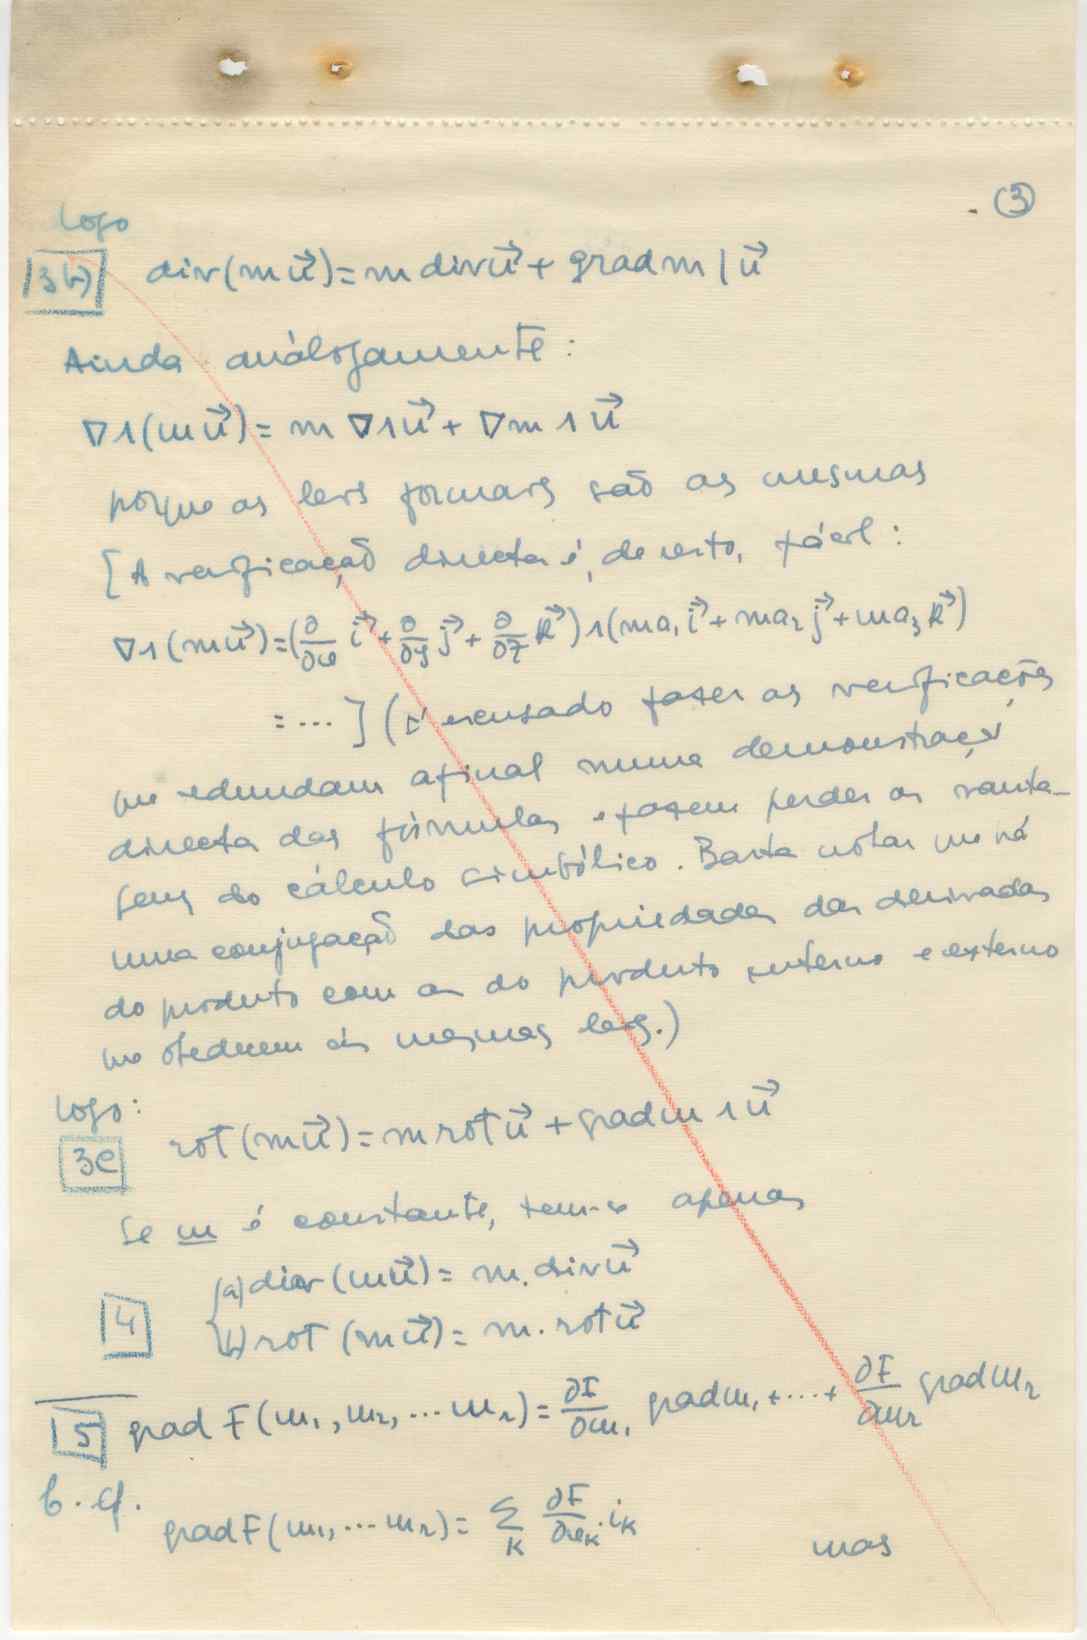 ③
Logo
3b) div(m u⃗) = m div u⃗ + grad m | u⃗
Ainda análogamente :
∇∧(m u⃗) = m ∇∧u⃗ + ∇m ∧ u⃗
porque as leis formais são as mesmas
[A verificação directa é, de resto, fácil :
∇∧(m u⃗) = (∂/∂x i⃗ + ∂/∂y j⃗ + ∂/∂z k⃗) ∧ (ma₁ i⃗ + ma₂ j⃗ + ma₃ k⃗)
= ... ] (É escusado fazer as verificações
que redundam afinal numa demonstração
directa das fórmulas e fazem perder as vanta-
gens do cálculo simbólico. Basta notar que há
uma conjugação das propriedades das derivadas
do produto com as do produto interno e externo
que obedecem às mesmas leis.)
Logo:
3c rot (m u⃗) = m rot u⃗ + grad m ∧ u⃗
Se m é constante, tem-se apenas
4 { (a) div (m u⃗) = m. div u⃗
b) rot (m u⃗) = m. rot u⃗
5 grad F(m₁, m₂, ... mᵣ) = ∂F/∂m₁ grad m₁ + .... + ∂F/∂mᵣ grad mᵣ
grad F(m₁, ... mᵣ) = Σ_K ∂F/∂x_K . i_K
mas